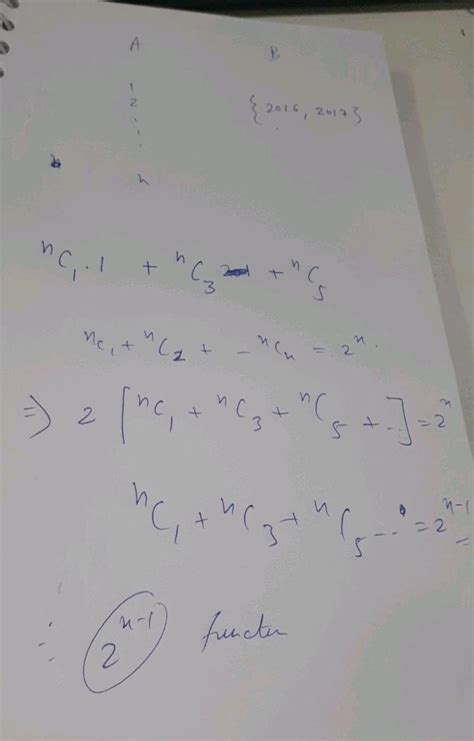 A B
1
2 {2016, 2017}
⋮
n
ⁿC₁.1 + ⁿC₃ + ⁿC₅
ⁿC₁ + ⁿC₂ + - ⁿCₙ = 2ⁿ.
⇒ 2 [ⁿC₁ + ⁿC₃ + ⁿC₅ + ..] = 2ⁿ
ⁿC₁ + ⁿC₃ + ⁿC₅ --- = 2ⁿ⁻¹
∴ 2ⁿ⁻¹